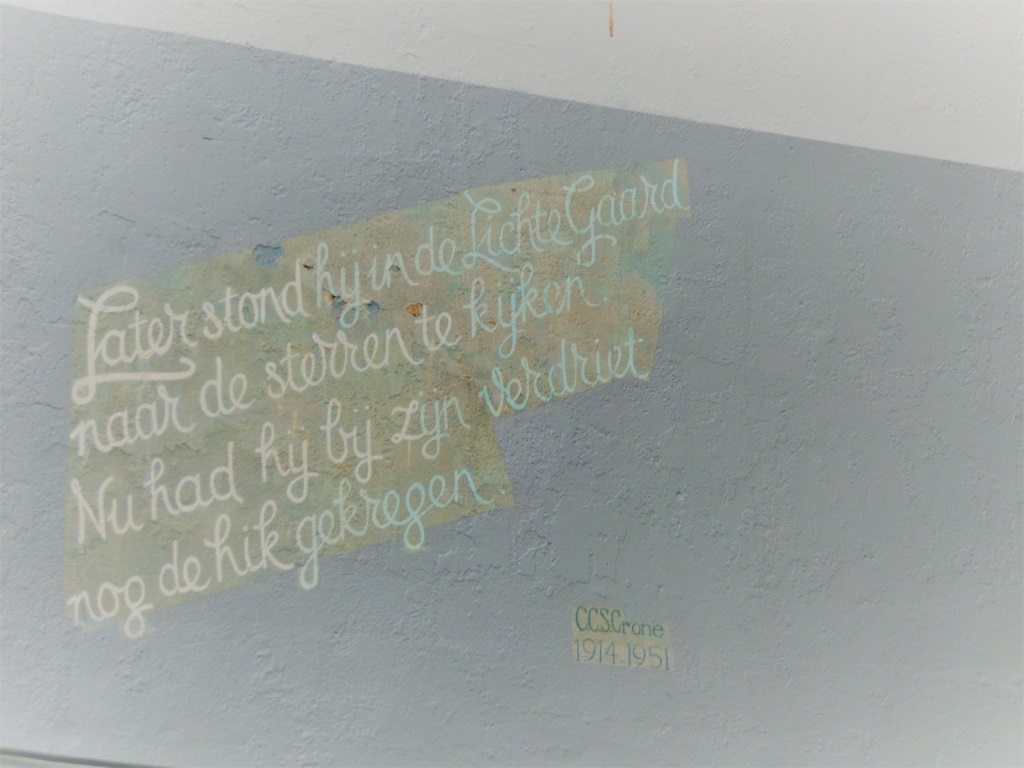 Later stond hij in de Lichte Gaard
naar de sterren te kijken.
Nu had hij bij zijn verdriet
nog de hik gekregen.
CCSCrone
1914-1951